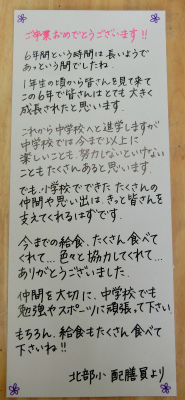 ご卒業おめでとうございます!!
6年間という時間は長いようで
あっという間でしたね.
1年生の頃から皆さんを見て来て
この6年で皆さんはとても大きく
成長されたと思います.
これから中学校へと進学しますが
中学校では今まで以上に
楽しいことも、努力しないといけない
こともたくさんあると思います.
でも、小学校でできた たくさんの
仲間や思い出は、きっと皆さんを
支えてくれるはずです.
今までの給食、たくさん食べて
くれて…色々と協力してくれて…
ありがとうございました.
仲間を大切に、中学校でも
勉強やスポーツに頑張って下さい
もちろん、給食もたくさん食べて
下さいね!!
北部小 配膳員より